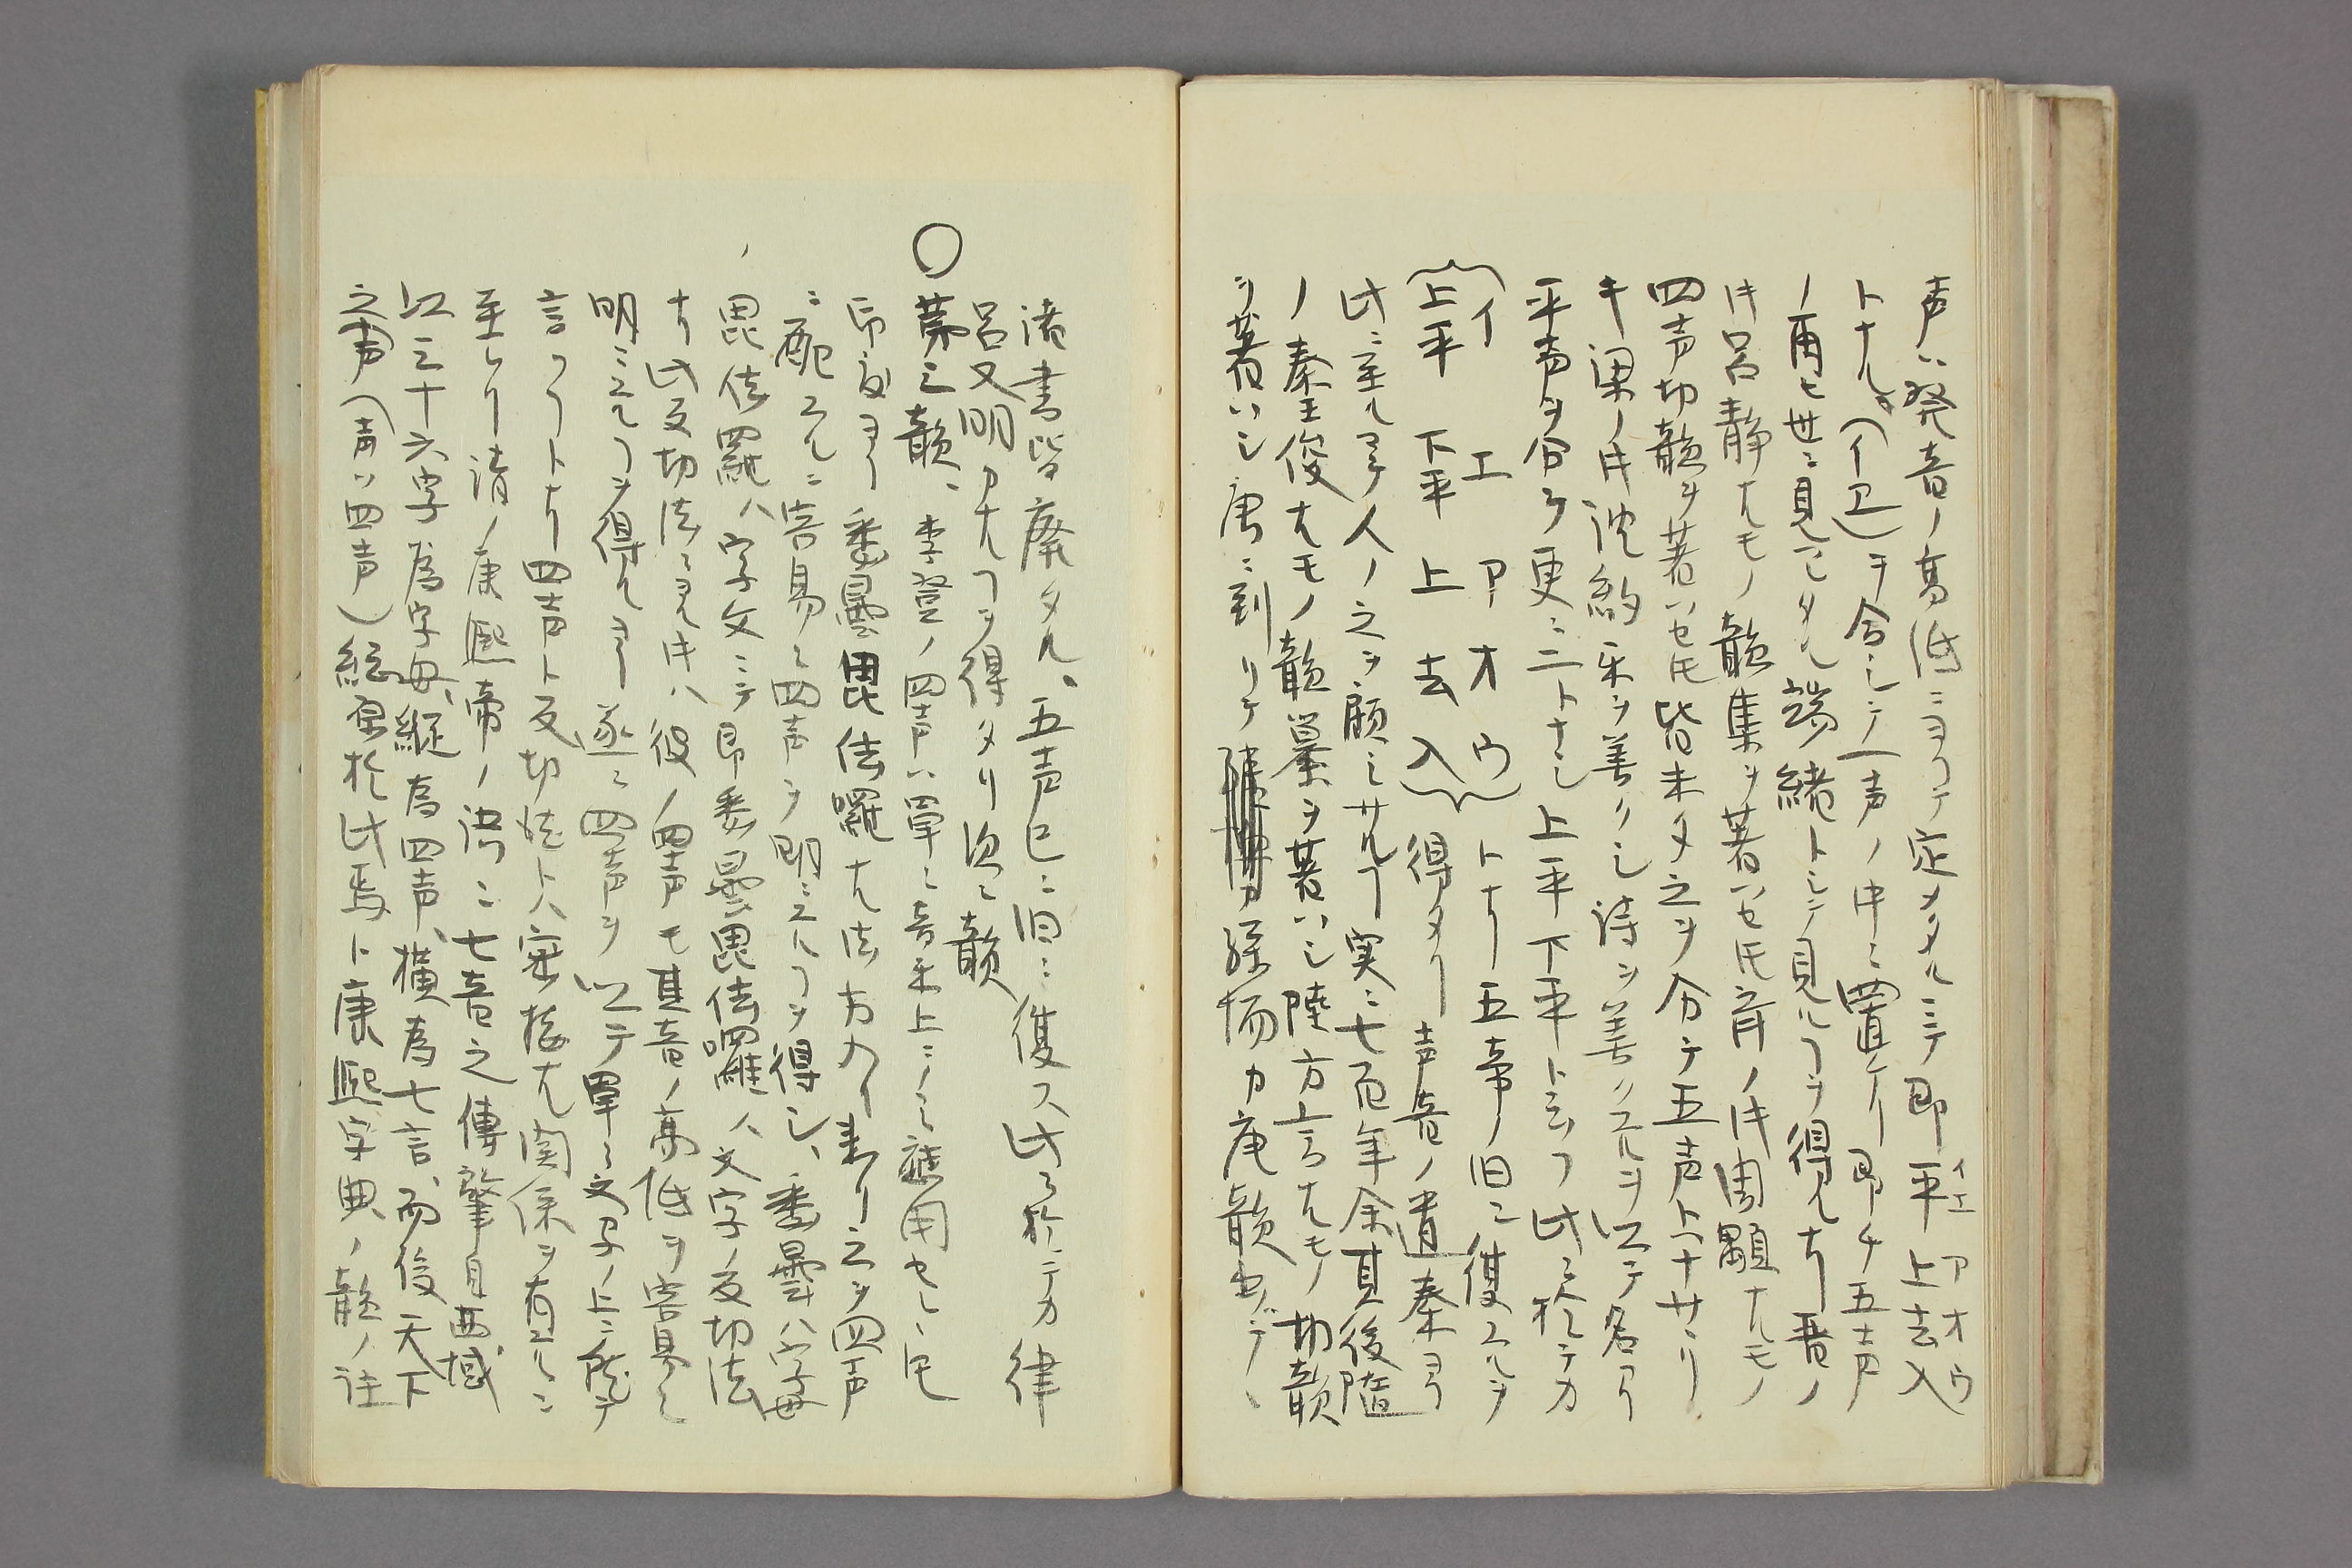 声ハ発音ノ高低ニヨリテ定メタルニテ即平軽上去入
イエ アオウ
トナル。(イエ)ヲ合シテ一声ノ中ニ置ケリ即チ五声
ノ再ヒ世ニ見ハレタル端緒トシテ見ルヿヲ得ルナリ晋ノ
時呂静ナルモノ韻集ヲ著ハセ𪜈斉ノ時周顒ナルモノ
四声切韻ヲ著ハセ𪜈皆未タ之ヲ分テ五声トナサヽリ
キ梁ノ時沈約釆ヲ善クシ詩ヲ善クスルヲ以テ名アリ
平声ヲ分ケ更ニ二トナシ上平下平ト云フ此ニ於テカ
(イ エ ア オ ウ)トナリ五帝ノ旧ニ復スルヲ
(上平 下平 上 去 入)得タリ声音ノ道秦ヨリ
此ニ至ル迄人ノ之ヲ顧ミサルヿ実ニ七百年余其後隨
ノ秦王俊ナルモノ韻纂ヲ著ハシ陸方言ナルモノ切韻
ヲ著ハシ唐ニ到リテ孫愐カ唐韻出デ
諸書皆廃タル。五声已ニ旧ニ復ス此ニ於テカ律
呂又明カナルヿヲ得タリ次ニ韻
〇第三韻、李登ノ四声ハ単ニ音釆上ニノミ適用セシ𪜈
印度ヨリ悉曇毘佉囉ナル法方入リ来リ之ヲ四声
ニ配スルニ容易ニ四声ヲ明ニスルヿヲ得シ、悉曇ハ字母
毘佉羅ハ字文ニテ即悉曇毘佉囉ハ文字ノ反切法
ナリ此反切法ニヨル時ハ彼ノ四声モ其音ノ高低ヲ容易ニ
明ニスルヿヲ得ルヨリ遂ニ四声ヲ以テ単ニ文字ノ上ニ就テ
言フヿトナリ四声ト反切法トハ密接ナル関係ヲ有スルニ
至レリ清ノ康熙帝ノ語ニ七音之傳肇自西域
以三十六字為字母、縦為四声、横為七音、而後天下
之声(声ハ四声)総帰於此焉ト康熙字典ノ韻ノ註